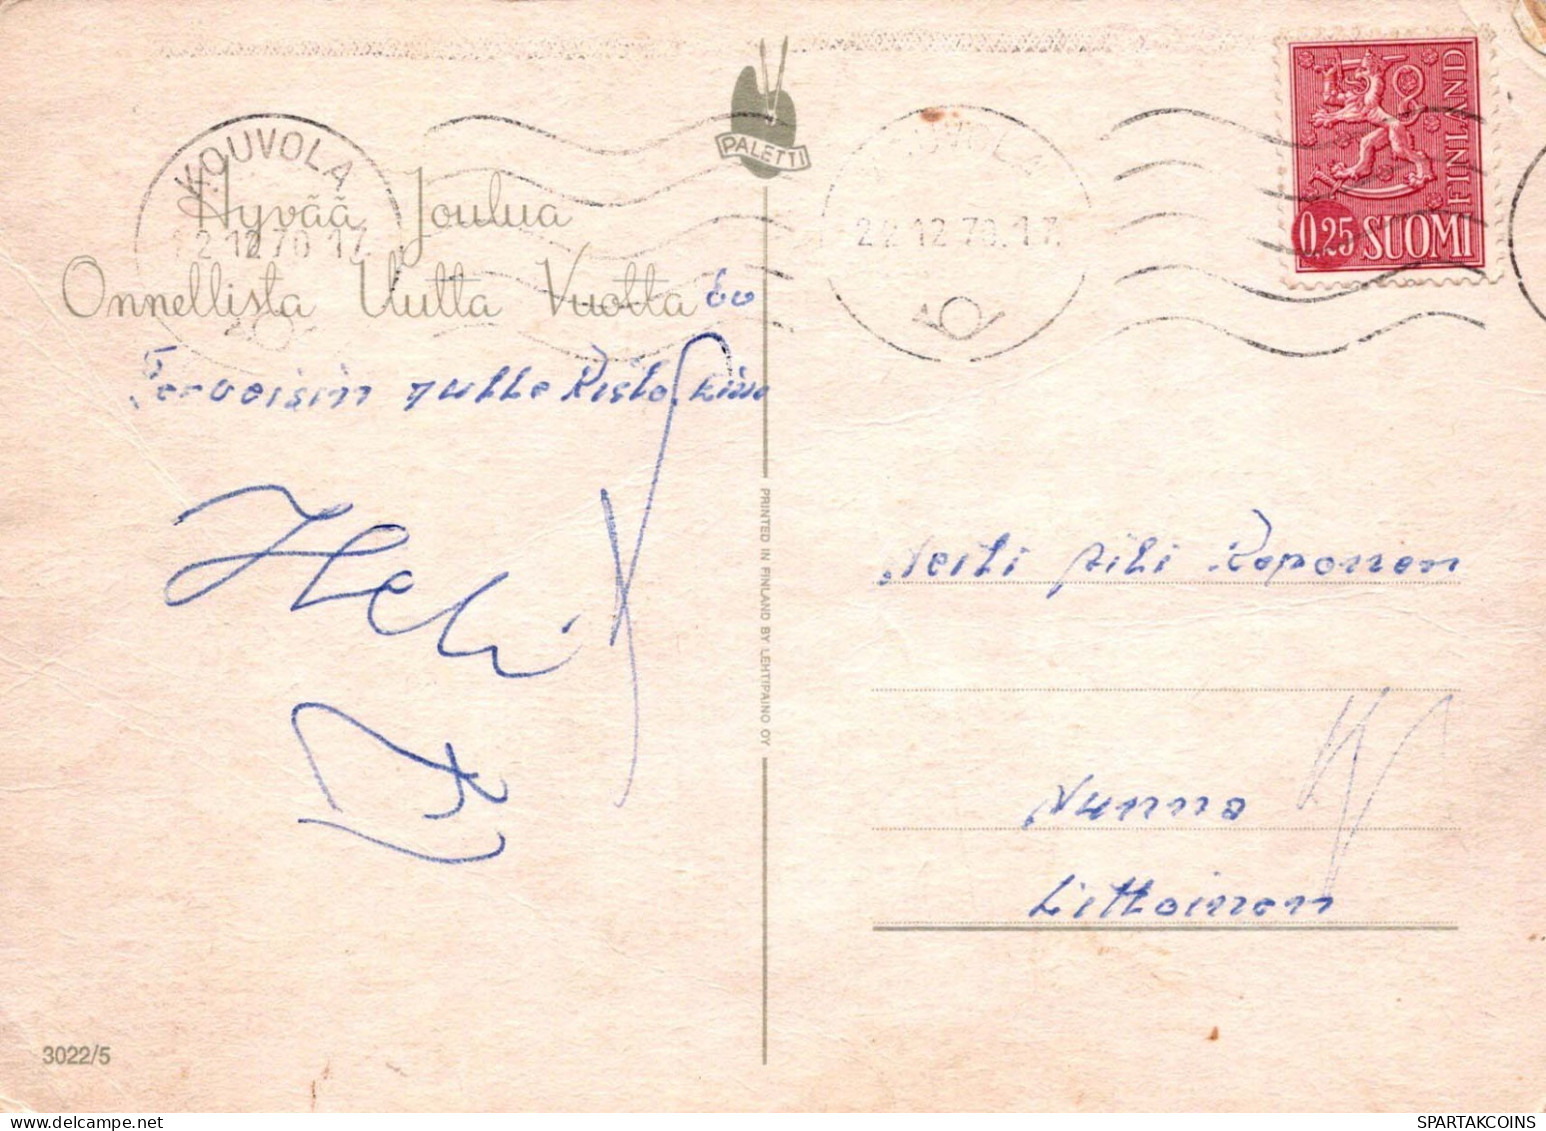 PALETTI
KOUVOLA
KOUVOLA
0,25 SUOMI
FINLAND
Hyvää Joulua
22.12.70.17.
22.12.70.17.
Onnellista Uutta Vuotta
Terveisin
Heli
PRINTED IN FINLAND BY LEHTIPAINO OY
Neiti Piki Reponen
Nunna
Littoinen
3022/5
SPARTAKCOINS.COM